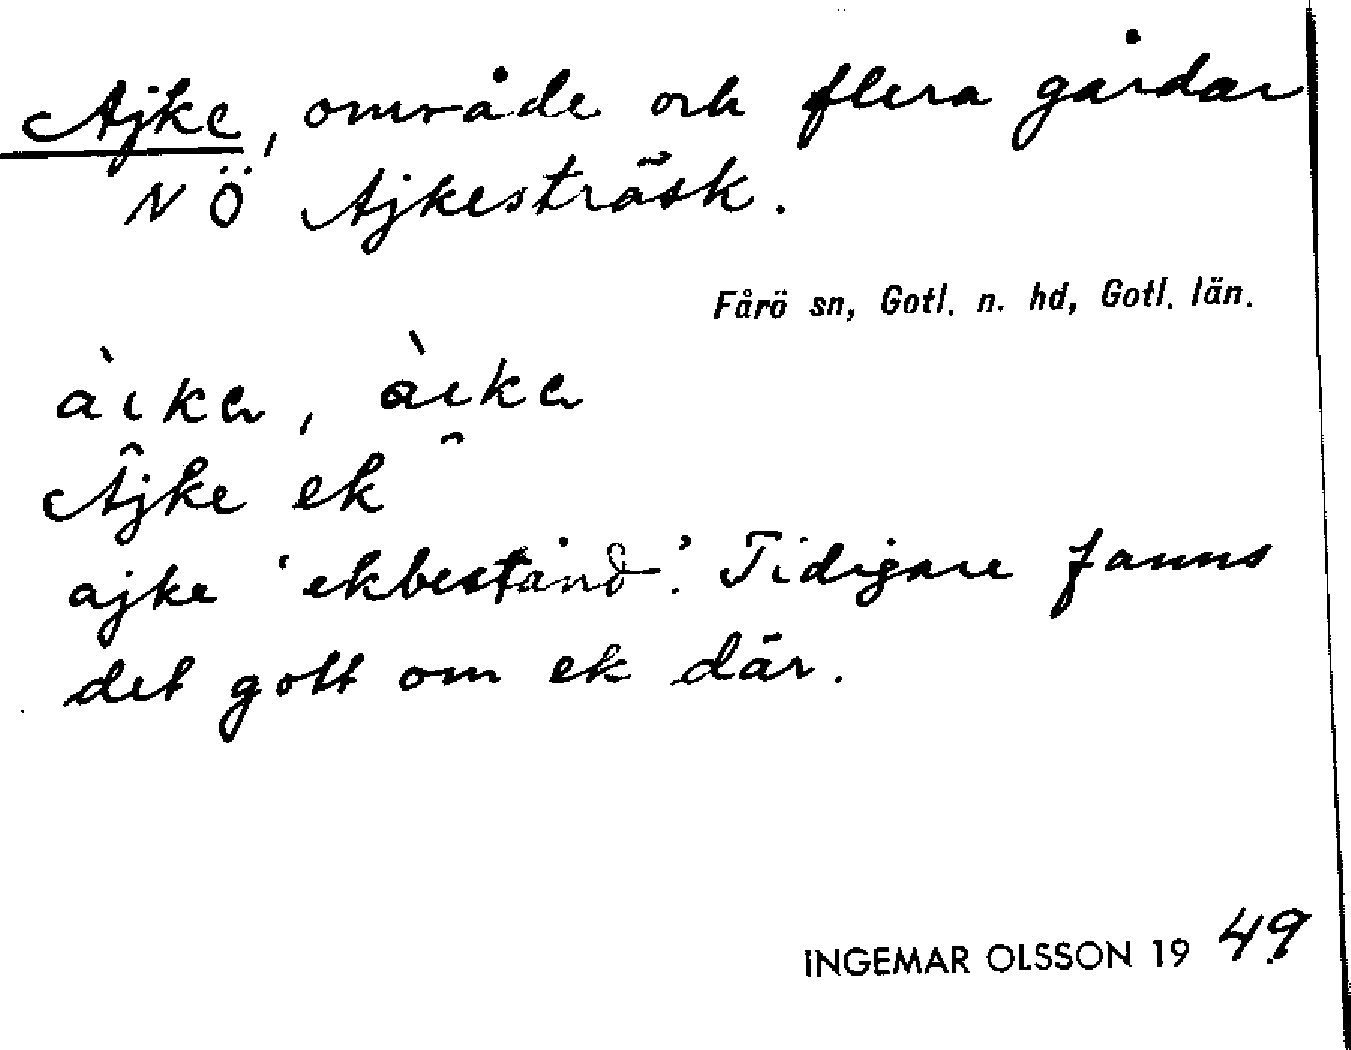 Ajke, område och flera gårdar
NÖ Ajkesträsk.
Fårö sn, Gotl. n. hd, Gotl. län.
àıkɐ, àıkɐ
Ajke ek
ajke 'ekbestånd'. Tidigare fanns
det gott om ek där.
INGEMAR OLSSON 1949